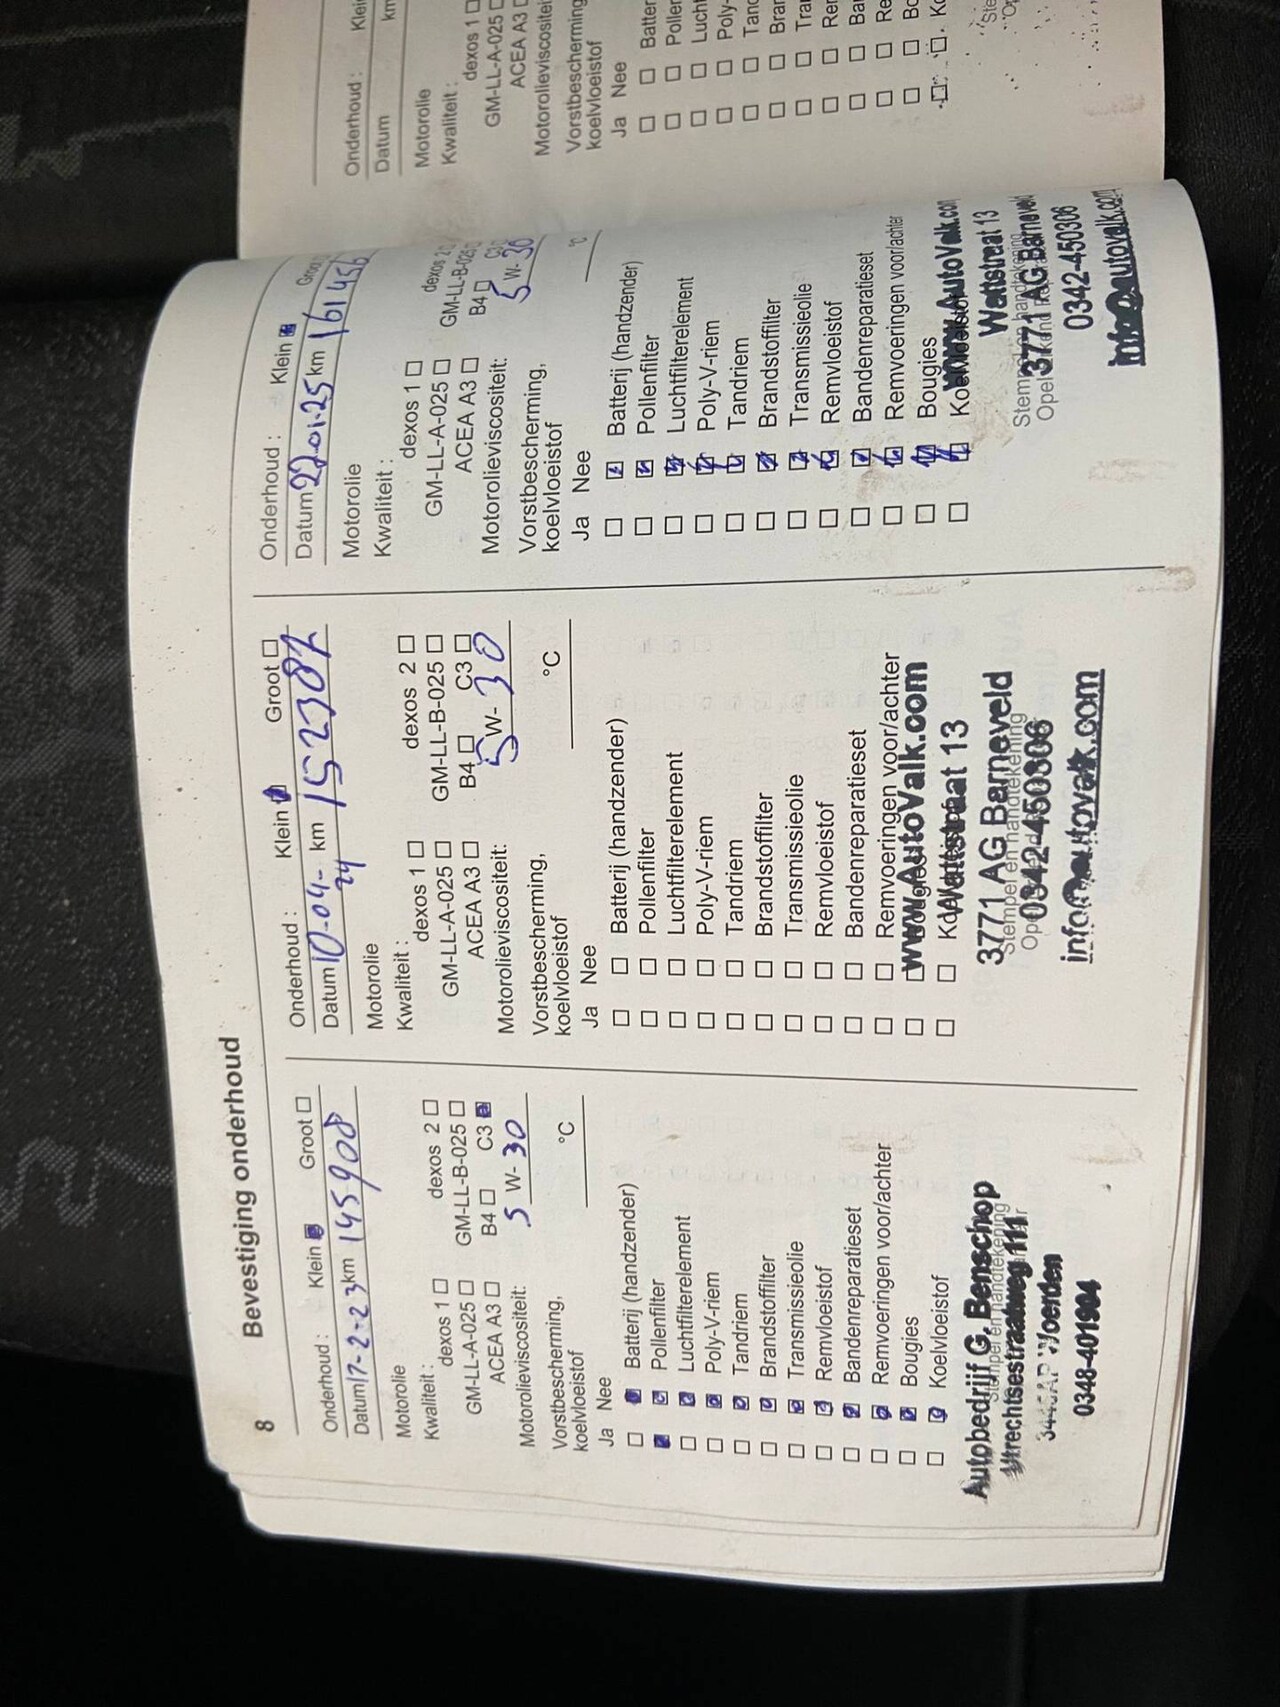 8 Bevestiging onderhoud
Onderhoud : Klein Groot
Datum 17-2-23 km 145908
Motorolie
Kwaliteit :
dexos 1 dexos 2
GM-LL-A-025 GM-LL-B-025
ACEA A3 B4 C3
Motorolieviscositeit: 5 W- 30
Vorstbescherming,
koelvloeistof °C
Ja Nee
Batterij (handzender)
Pollenfilter
Luchtfilterelement
Poly-V-riem
Tandriem
Brandstoffilter
Transmissieolie
Remvloeistof
Bandenreparatieset
Remvoeringen voor/achter
Bougies
Koelvloeistof
Autobedrijf G. Benschop
Stempel en handtekening
Utrechtsestraatweg 111
Woerden
0348-401904
Onderhoud : Klein Groot
Datum 10-04-24 km 152387
Motorolie
Kwaliteit :
dexos 1 dexos 2
GM-LL-A-025 GM-LL-B-025
ACEA A3 B4 C3
Motorolieviscositeit: 5 W- 30
Vorstbescherming,
koelvloeistof °C
Ja Nee
Batterij (handzender)
Pollenfilter
Luchtfilterelement
Poly-V-riem
Tandriem
Brandstoffilter
Transmissieolie
Remvloeistof
Bandenreparatieset
Remvoeringen voor/achter
www.AutoValk.com
Wattstraat 13
3771 AG Barneveld
Stempel en handtekening
0342-450306
info@autovalk.com
Onderhoud : Klein Groot
Datum 22-01-25 km 161456
Motorolie
Kwaliteit :
dexos 1 dexos 2
GM-LL-A-025 GM-LL-B-025
ACEA A3 B4 C3
Motorolieviscositeit: 5 W- 30
Vorstbescherming,
koelvloeistof °C
Ja Nee
Batterij (handzender)
Pollenfilter
Luchtfilterelement
Poly-V-riem
Tandriem
Brandstoffilter
Transmissieolie
Remvloeistof
Bandenreparatieset
Remvoeringen voor/achter
Bougies
Koelvloeistof
www.AutoValk.com
Wattstraat 13
Stempel en handtekening
3771 AG Barneveld
0342-450306
info@autovalk.com
Onderhoud : Klein
Datum km
Motorolie
Kwaliteit :
dexos 1
GM-LL-A-025
ACEA A3
Motorolieviscositeit
Vorstbescherming
koelvloeistof
Ja Nee
Batter
Pollen
Lucht
Poly-
Tand
Bran
Tran
Ren